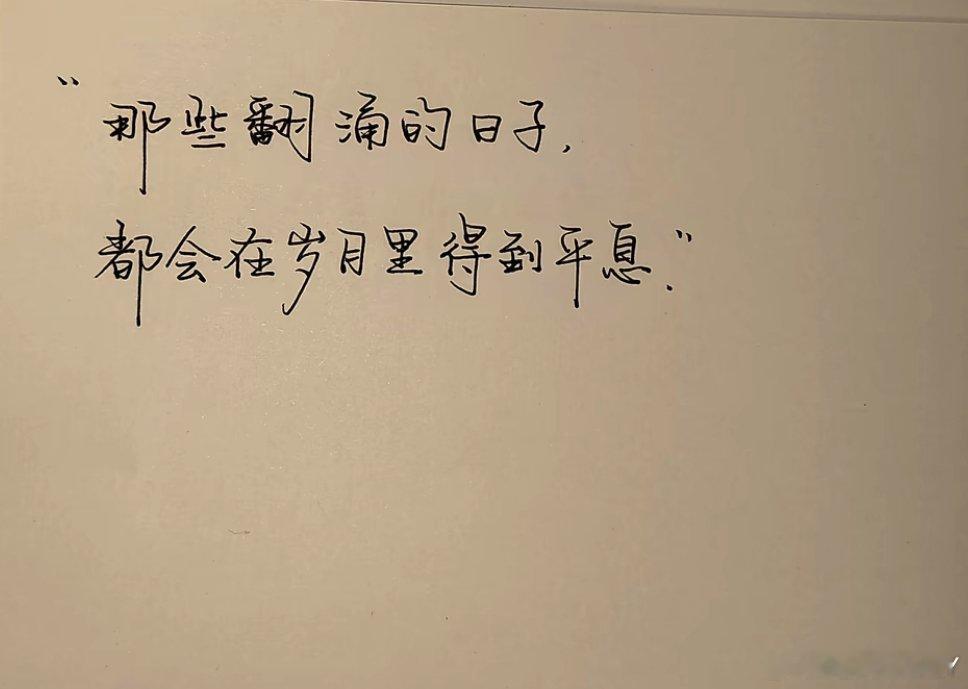 “那些翻涌的日子,
都会在岁月里得到平息.”